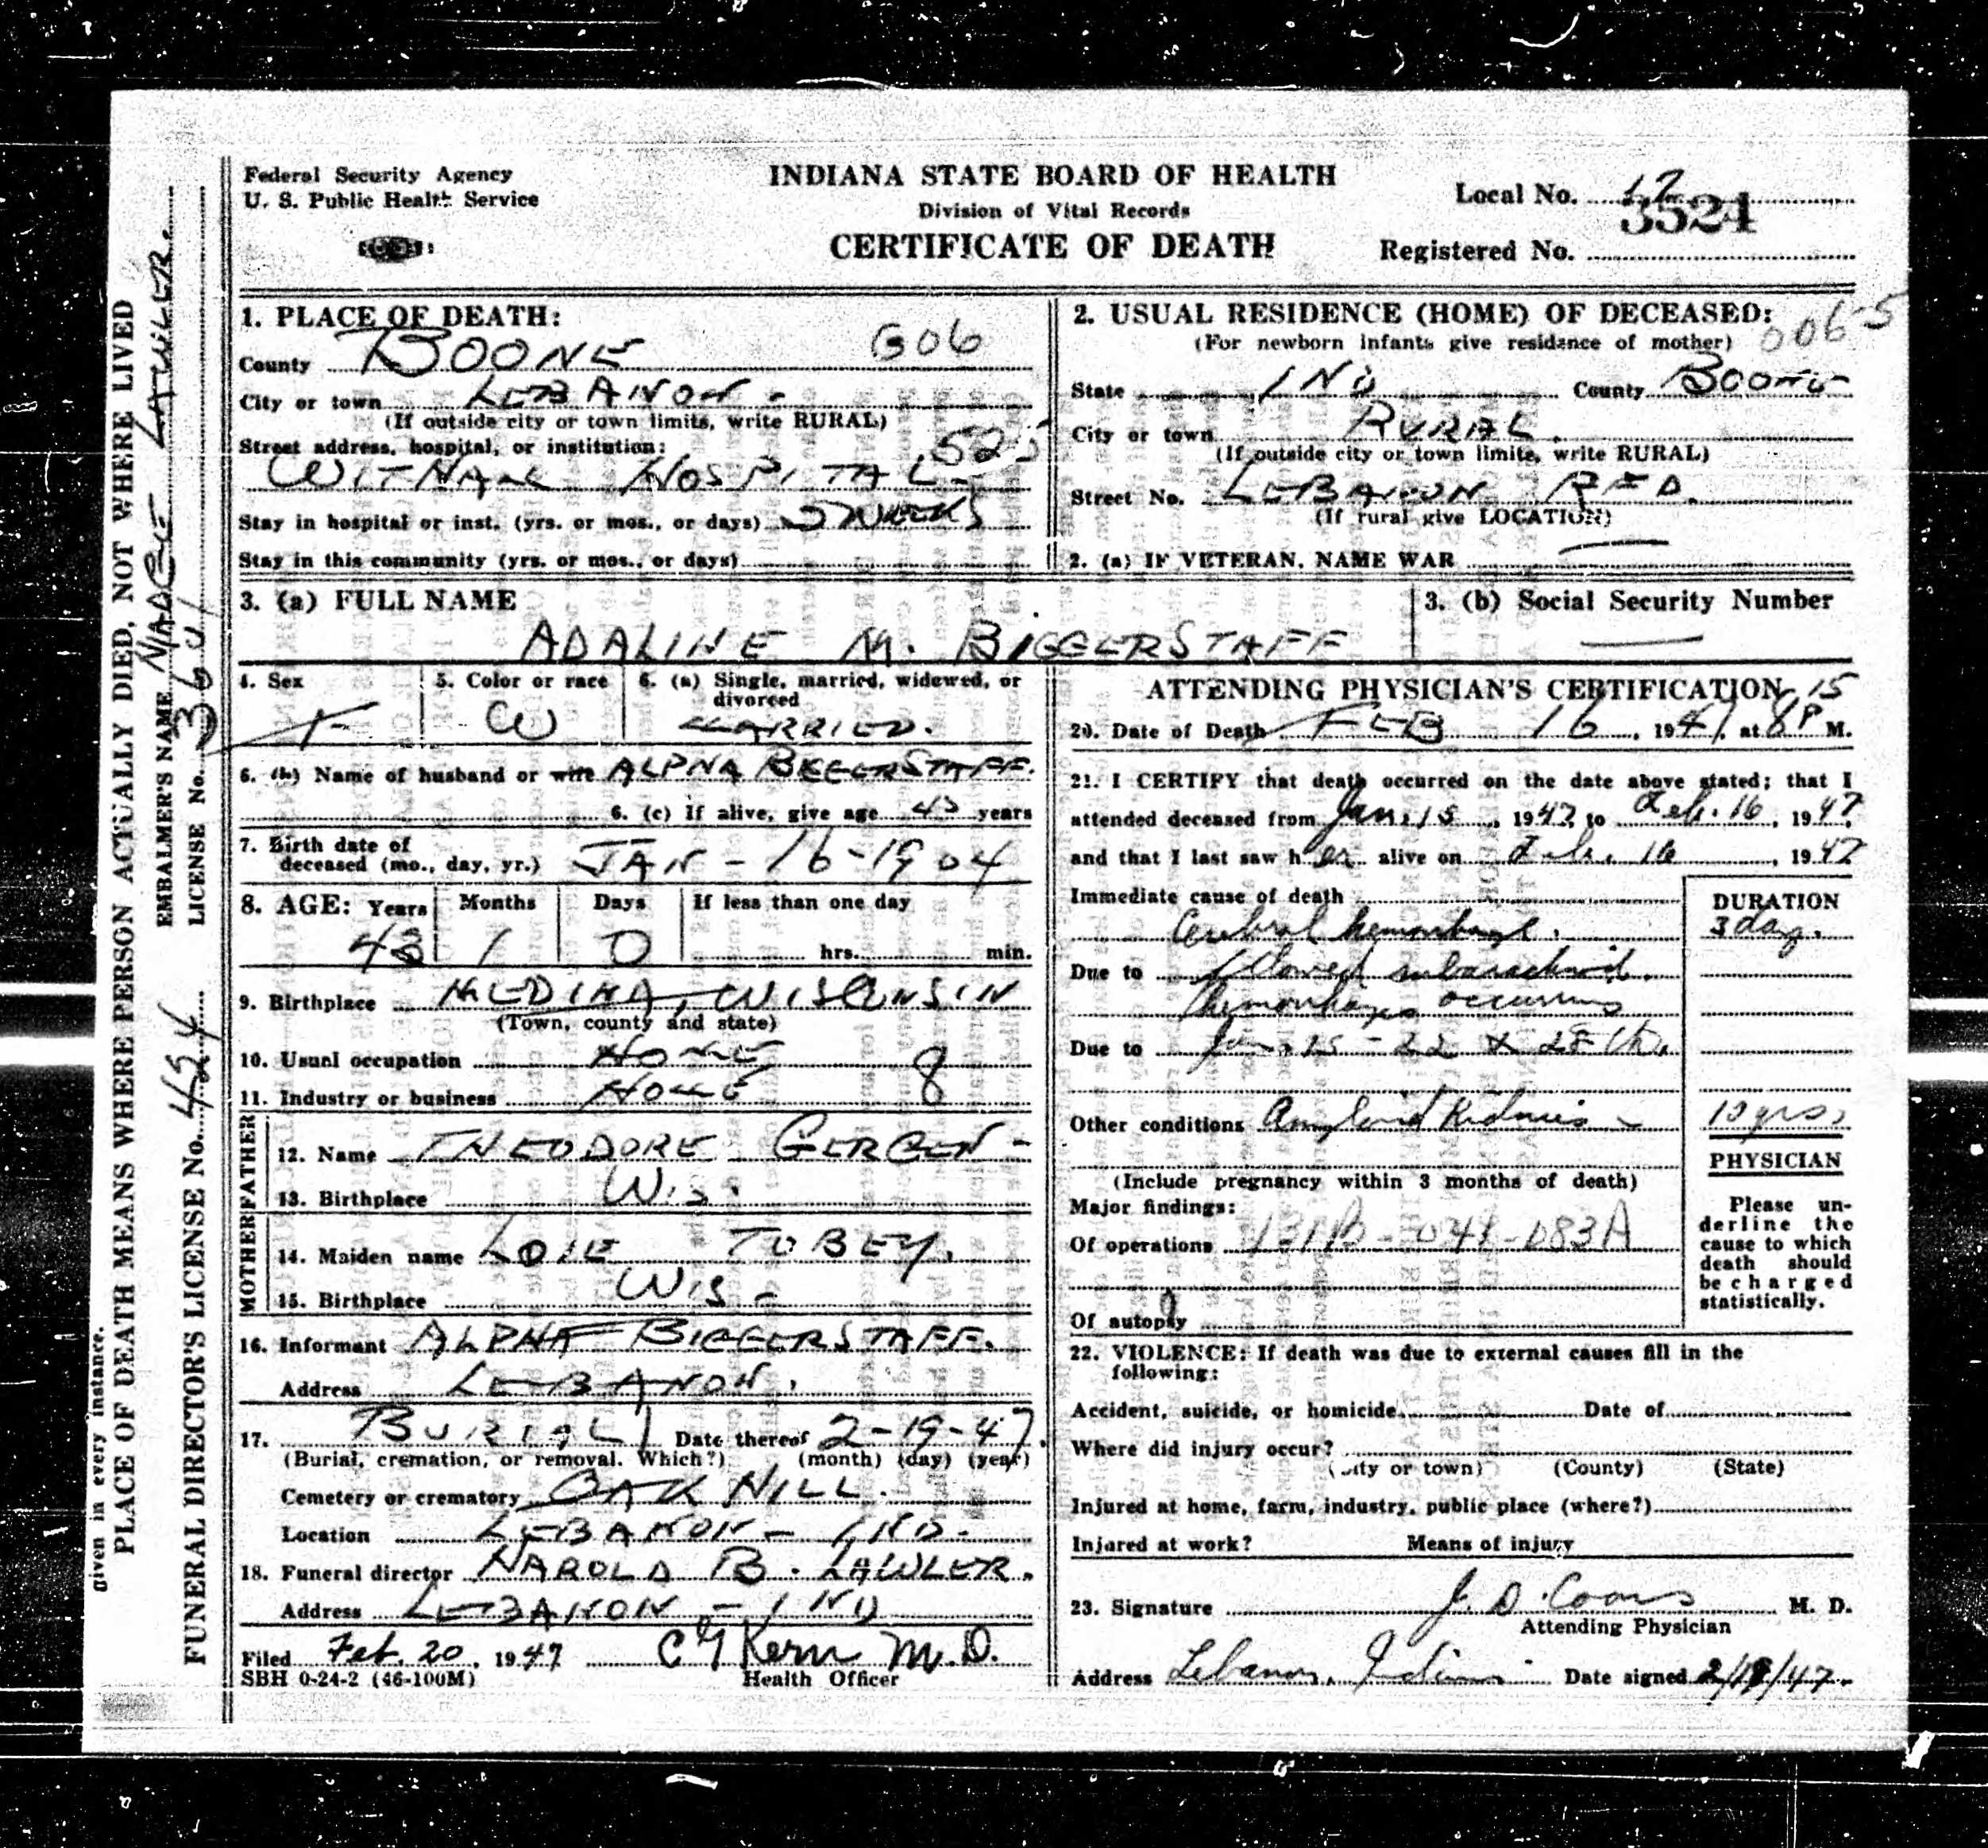 Federal Security Agency
U. S. Public Health Service
INDIANA STATE BOARD OF HEALTH
Division of Vital Records
CERTIFICATE OF DEATH
Local No. 17
3524
Registered No.
1. PLACE OF DEATH:
County BOONE G06
City or town LEBANON -
(If outside city or town limits, write RURAL)
Street address, hospital, or institution: 525
WITHAM HOSPITAL -
Stay in hospital or inst. (yrs. or mos., or days) WEEKS
Stay in this community (yrs. or mos., or days)
2. USUAL RESIDENCE (HOME) OF DECEASED:
(For newborn infants give residence of mother) 006-5
State IND County BOONE
City or town RURAL.
(If outside city or town limits, write RURAL)
Street No. LEBANON RFD.
(If rural give LOCATION)
2. (a) IF VETERAN, NAME WAR —
3. (a) FULL NAME
ADALINE M. BIGGERSTAFF
3. (b) Social Security Number
—
4. Sex
F
5. Color or race
W
6. (a) Single, married, widewed, or divorced
MARRIED.
6. (b) Name of husband or wife ALPHA BIGGERSTAFF.
6. (c) If alive, give age 43 years
7. Birth date of
deceased (mo., day, yr.) JAN - 16 - 1904
8. AGE: Years Months Days If less than one day
43 1 0 hrs. min.
9. Birthplace MEDINA, WISCONSIN
(Town, county and state)
10. Usual occupation HOME
11. Industry or business HOME 8
FATHER
12. Name THEODORE GERGEN -
13. Birthplace WIS.
MOTHER
14. Maiden name LOIE TOBEY.
15. Birthplace WIS -
16. Informant ALPHA BIGGERSTAFF.
Address LEBANON.
17. BURIAL Date thereof 2-19-47.
(Burial, cremation, or removal. Which?) (month) (day) (year)
Cemetery or crematory OAK HILL.
Location LEBANON - IND.
18. Funeral director HAROLD B. LAWLER.
Address LEBANON - IND
Filed Feb. 20, 1947 C G Kern M.D.
SBH 0-24-2 (46-100M) Health Officer
ATTENDING PHYSICIAN'S CERTIFICATION
20. Date of Death FEB 16, 1947, at 8 15 P M.
21. I CERTIFY that death occurred on the date above stated; that I
attended deceased from Jan. 15, 1947, to Feb. 16, 1947,
and that I last saw her alive on Feb. 16, 1947
Immediate cause of death
Cerebral hemorrhage.
DURATION
3 day.
Due to followed subarachnoid
hemorrhages occurring
Due to Jan. 15 - 22 & 28th.
Other conditions Amyloid Kidneys - 10 yrs,
(Include pregnancy within 3 months of death)
Major findings:
Of operations 131B - 041 - 083A
Of autopsy
PHYSICIAN
Please un-
derline the
cause to which
death should
be charged
statistically.
22. VIOLENCE: If death was due to external causes fill in the
following:
Accident, suicide, or homicide Date of
Where did injury occur?
(City or town) (County) (State)
Injured at home, farm, industry, public place (where?)
Injured at work? Means of injury
23. Signature J. D. Coons M. D.
Attending Physician
Address Lebanon, Indiana Date signed 2/18/47.
given in every instance.
PLACE OF DEATH MEANS WHERE PERSON ACTUALLY DIED, NOT WHERE LIVED
EMBALMER'S NAME LAWLER.
LICENSE No.
FUNERAL DIRECTOR'S LICENSE No. 424